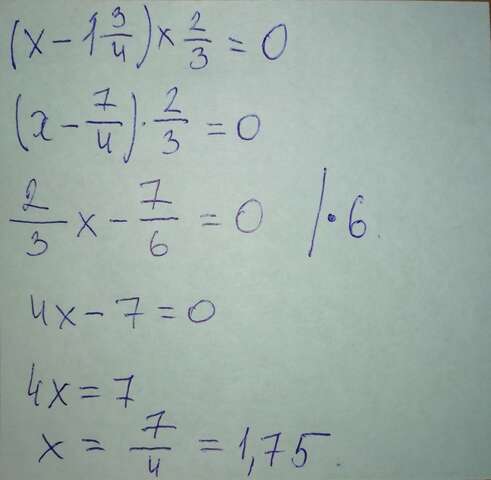 (x - 1 3/4) × 2/3 = 0
(x - 7/4) · 2/3 = 0
2/3 x - 7/6 = 0 | · 6.
4x - 7 = 0
4x = 7
x = 7/4 = 1,75.